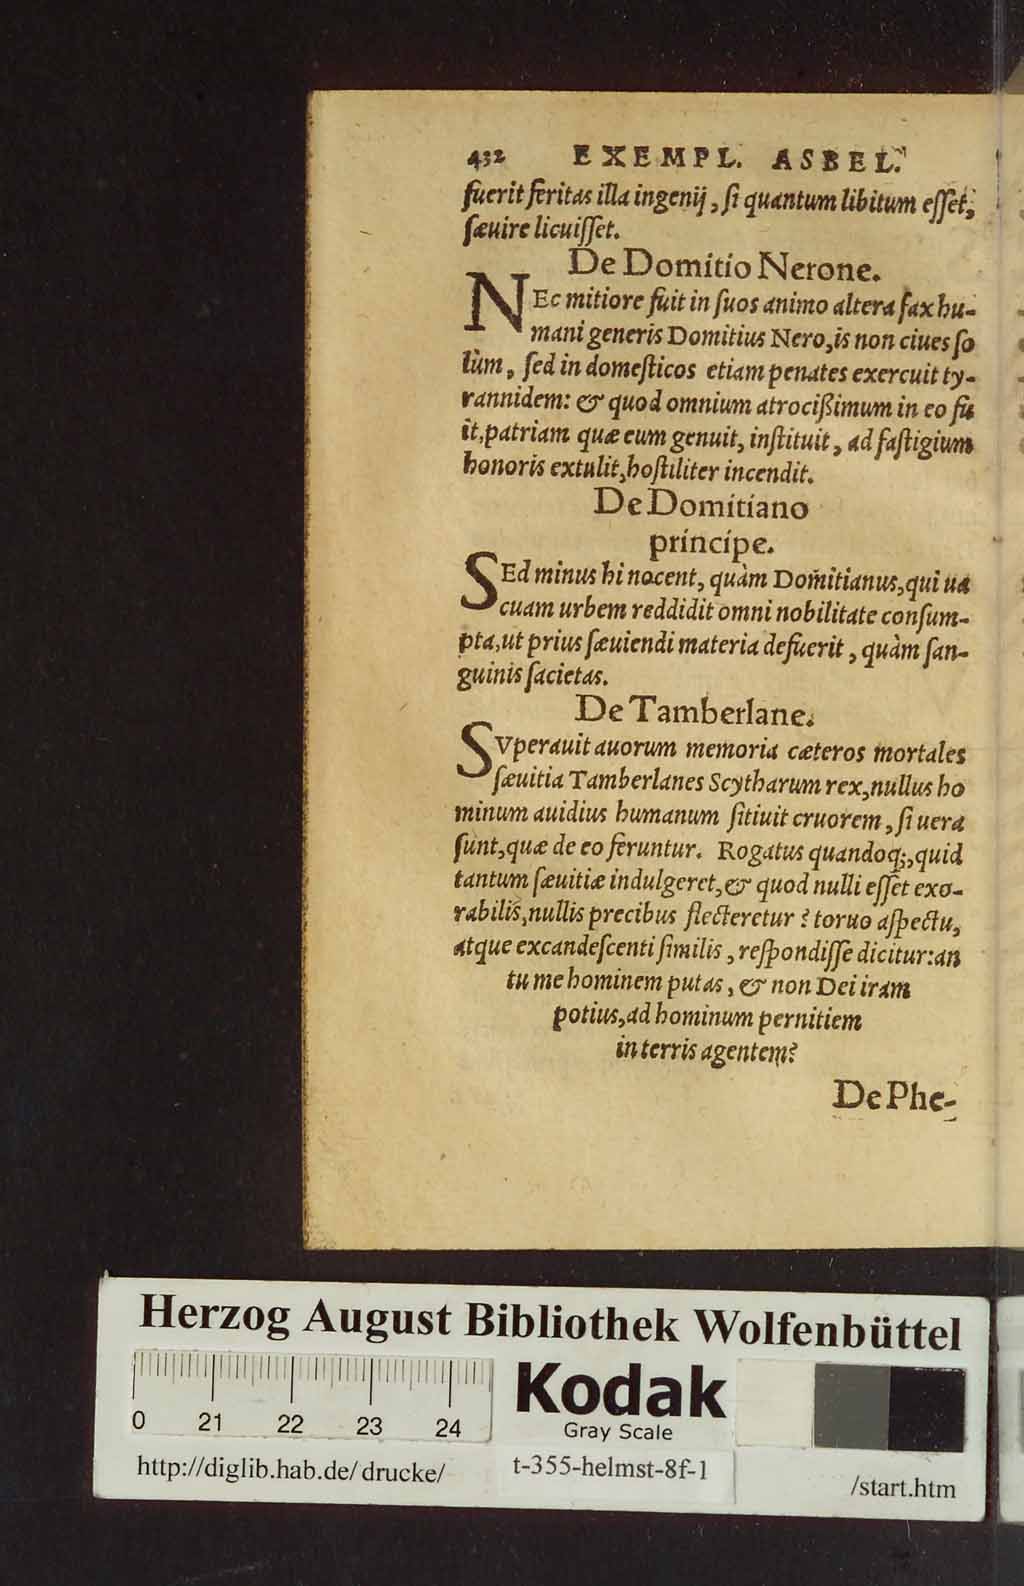 432 EXEMPL. ASBEL.
fuerit feritas illa ingenij, ſi quantum libitum eſſet,
ſæuire licuiſſet.
De Domitio Nerone.
NEc mitiore fuit in ſuos animo altera fax hu-
mani generis Domitius Nero, is non ciues ſo
lùm, ſed in domeſticos etiam penates exercuit ty-
rannidem: & quod omnium atrocißimum in eo fu
it, patriam quæ eum genuit, inſtituit, ad faſtigium
honoris extulit, hoſtiliter incendit.
De Domitiano
principe.
SEd minus hi nocent, quàm Domitianus, qui ua
cuam urbem reddidit omni nobilitate conſum-
pta, ut prius ſæuiendi materia defuerit, quàm ſan-
guinis ſacietas.
De Tamberlane.
SVperauit auorum memoria cæteros mortales
ſæuitia Tamberlanes Scytharum rex, nullus ho
minum auidius humanum ſitiuit cruorem, ſi uera
ſunt, quæ de eo feruntur. Rogatus quandoq;, quid
tantum ſæuitiæ indulgeret, & quod nulli eſſet exo-
rabilis, nullis precibus flecteretur? toruo aſpectu,
atque excandeſcenti ſimilis, reſpondiſſe dicitur: an
tu me hominem putas, & non Dei iram
potius, ad hominum pernitiem
in terris agentem?
De Phe-
Herzog August Bibliothek Wolfenbüttel
0 21 22 23 24
Kodak
Gray Scale
http://diglib.hab.de/drucke/ t-355-helmst-8f-1 /start.htm